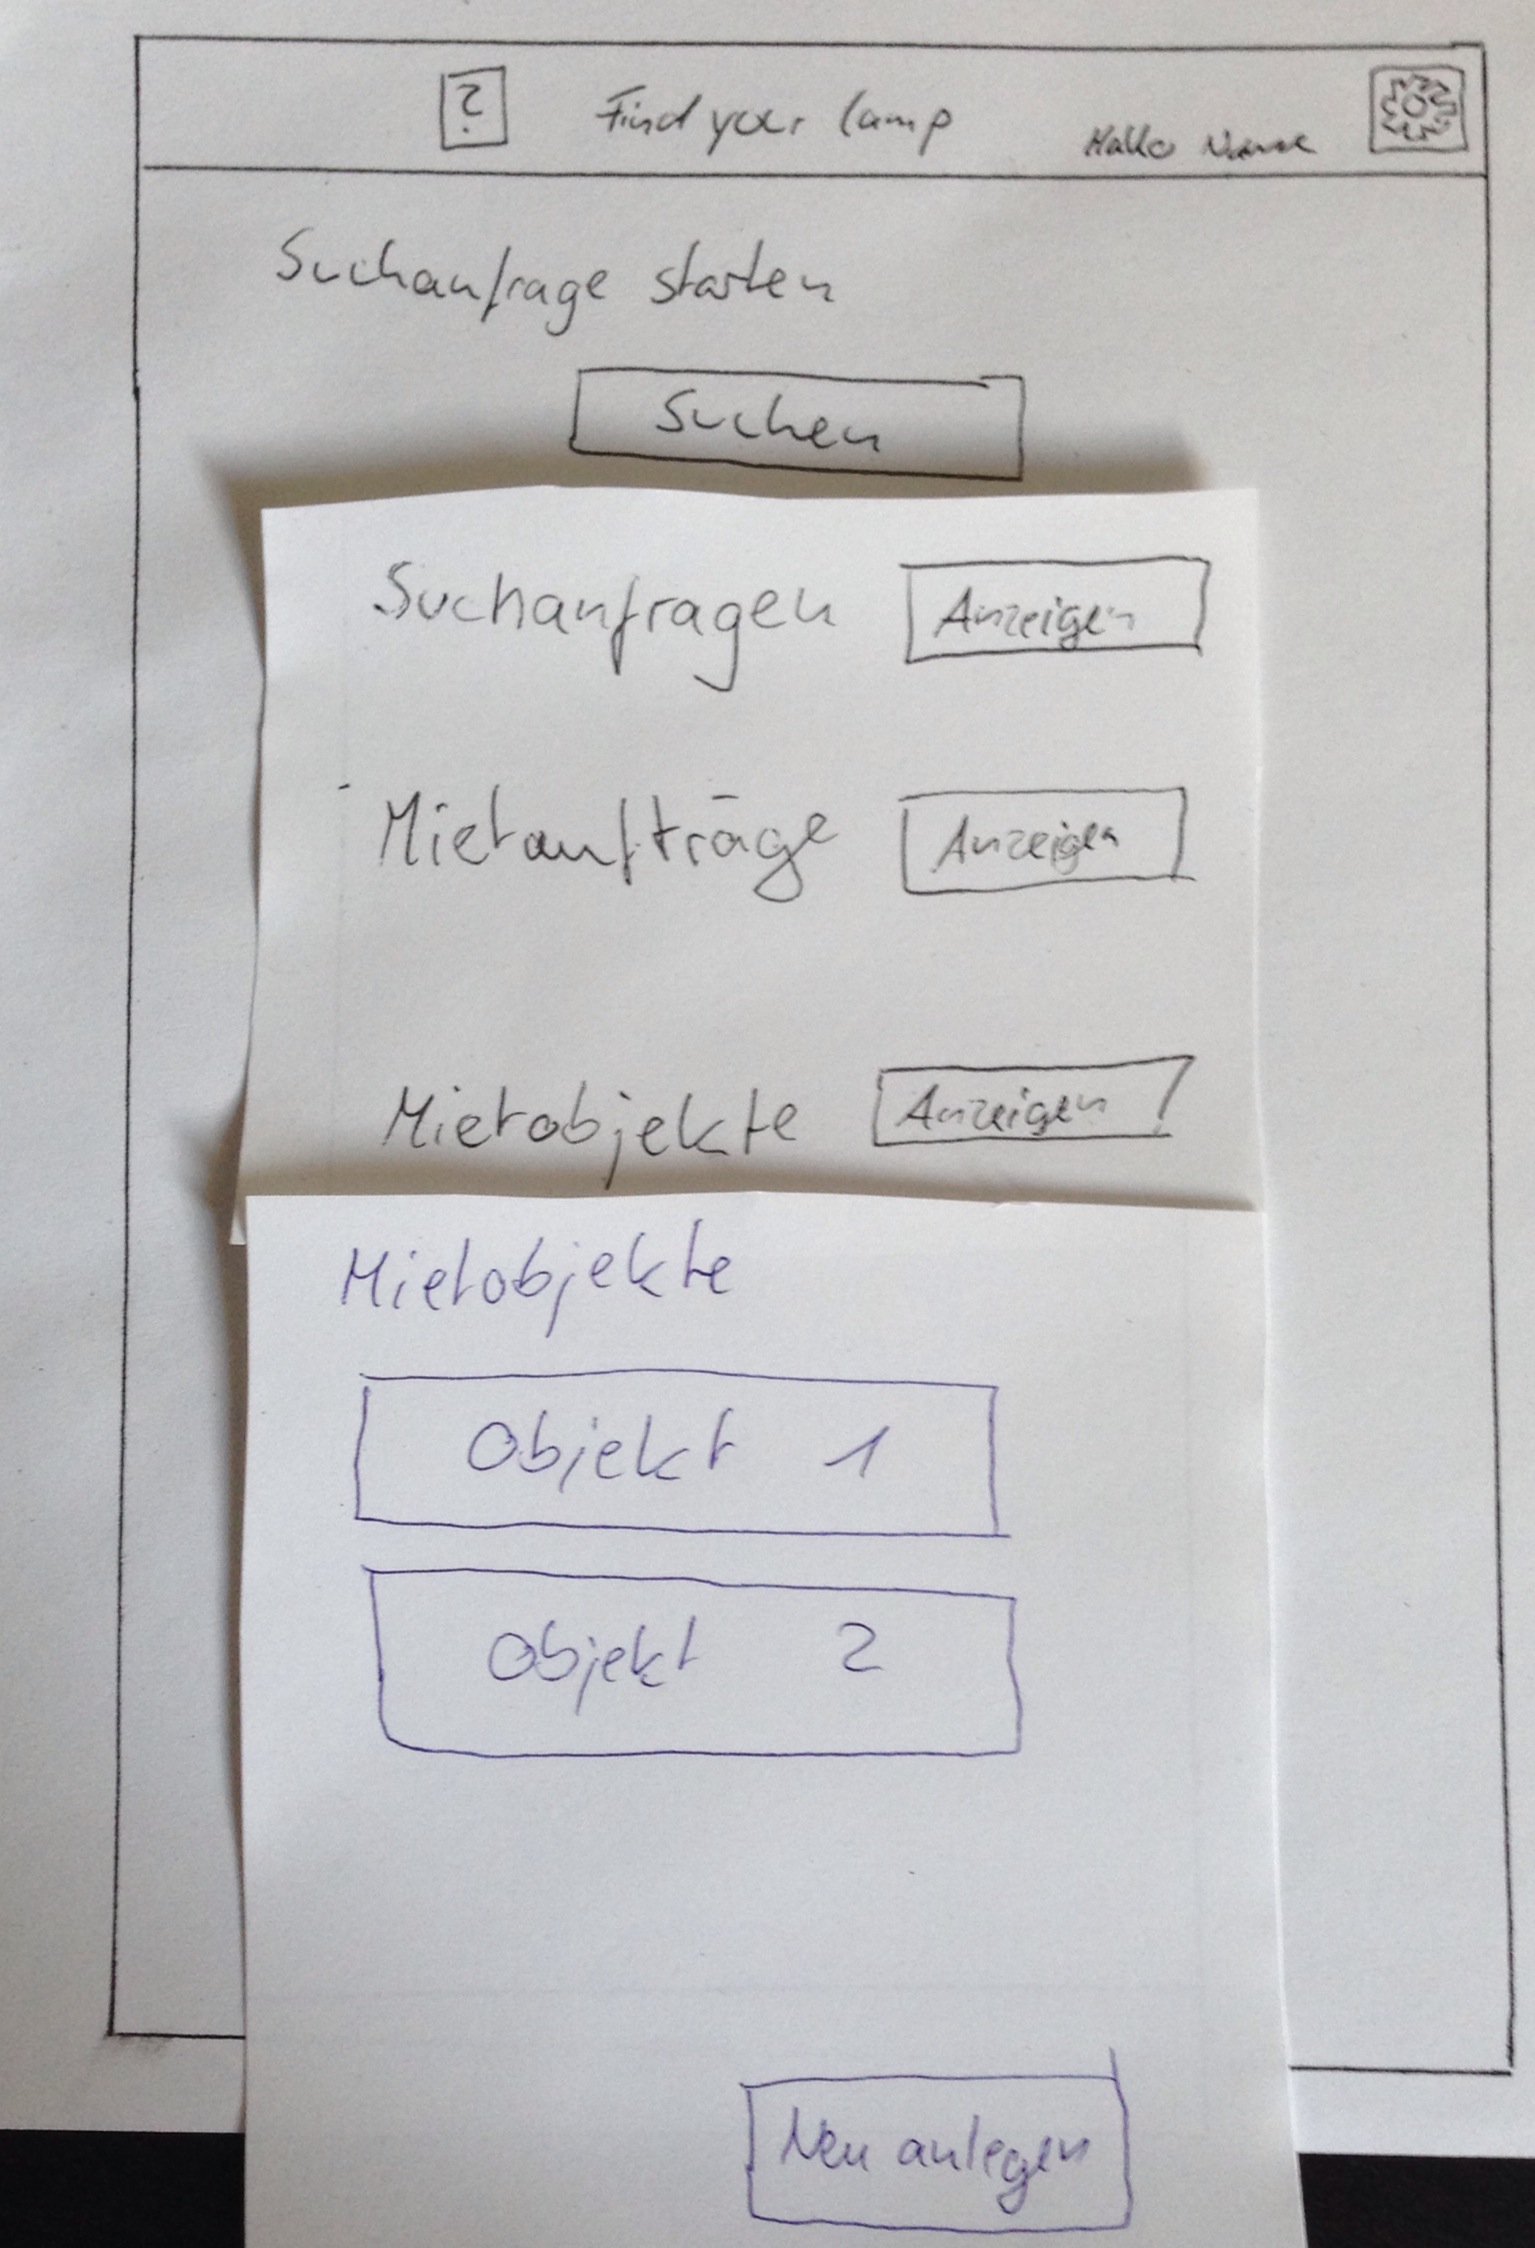 ?
Find your lamp
Hallo Name
Suchanfrage starten
Suchen
Suchanfragen Anzeigen
Mietaufträge Anzeigen
Mietobjekte Anzeigen
Mietobjekte
Objekt 1
Objekt 2
Neu anlegen